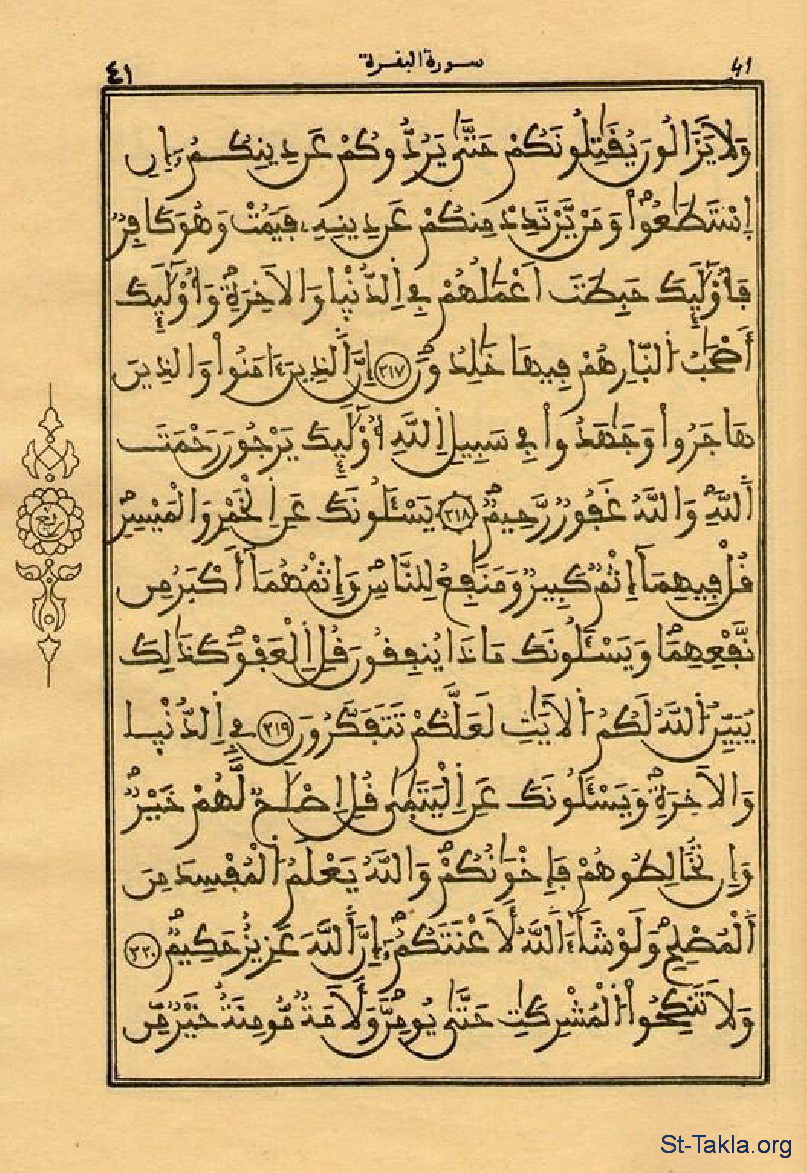 ٤١ سورة البقرة 41
وَلَا يَزَالُونَ يُقَٰتِلُونَكُمْ حَتَّىٰ يَرُدُّوكُمْ عَن دِينِكُمُۥ إِنِ
اِسْتَطَٰعُواْ وَمَنْ يَّرْتَدِدْ مِنكُمْ عَن دِينِهِۦ فَيَمُتْ وَهُوَ كَافِرٌ
فَأُوْلَٰٓئِكَ حَبِطَتَ اَعْمَٰلُهُمْ فِے اِلدُّنْيَا وَالَاخِرَةِ وَأُوْلَٰٓئِكَ
أَصْحَٰبُ اُلنَّارِ هُمْ فِيهَا خَٰلِدُونَ ٢١٧ إِنَّ اَلذِينَ ءَامَنُواْ وَالذِينَ
هَاجَرُواْ وَجَٰهَدُواْ فِے سَبِيلِ اِللَّهِ أُوْلَٰٓئِكَ يَرْجُونَ رَحْمَتَ
اَللَّهِ وَاللَّهُ غَفُورٌ رَّحِيمٌ ٢١٨ يَسْـَٔلُونَكَ عَنِ اِلْخَمْرِ وَالْمَيْسِرِ
قُلْ فِيهِمَآ إِثْمٌ كَبِيرٌ وَمَنَٰفِعُ لِلنَّاسِ وَإِثْمُهُمَآ أَكْبَرُ مِن
نَّفْعِهِمَا وَيَسْـَٔلُونَكَ مَاذَا يُنفِقُونَ قُلِ اِلْعَفْوَ كَذَٰلِكَ
يُبَيِّنُ اُللَّهُ لَكُمُ اُلَايَٰتِ لَعَلَّكُمْ تَتَفَكَّرُونَ ٢١٩ فِے اِلدُّنْيَا
وَالَاخِرَةِ وَيَسْـَٔلُونَكَ عَنِ اِلْيَتَٰمَىٰ قُلِ اِصْلَٰحٌ لَّهُمْ خَيْرٌ
وَإِن تُخَالِطُوهُمْ فَإِخْوَٰنُكُمْ وَاللَّهُ يَعْلَمُ اُلْمُفْسِدَ مِنَ
اَلْمُصْلِحِ وَلَوْ شَآءَ اَللَّهُ لَأَعْنَتَكُمُۥ إِنَّ اَللَّهَ عَزِيزٌ حَكِيمٌ ٢٢٠
وَلَا تَنكِحُواْ اُلْمُشْرِكَٰتِ حَتَّىٰ يُومِنَّ وَلَأَمَةٌ مُّومِنَةٌ خَيْرٌ مِّن
St-Takla.org